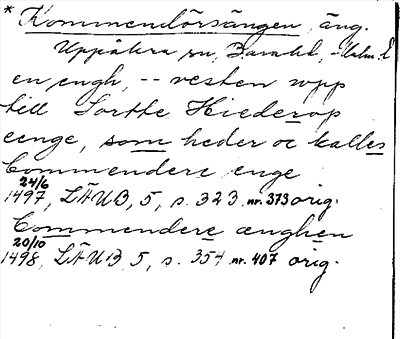 * Kommendörsängen, äng.
Uppåkra sn, Bara hd, Malm. l
en engh, -- vesten wpp
till Sortte Hiederop
eenge, som heder oc kalles
Commendere enge
24/6 1497, LÄUB, 5, s. 323 nr. 373 orig.
Commendere ænghen
20/10 1498, LÄUB 5, s. 354 nr. 407 orig.